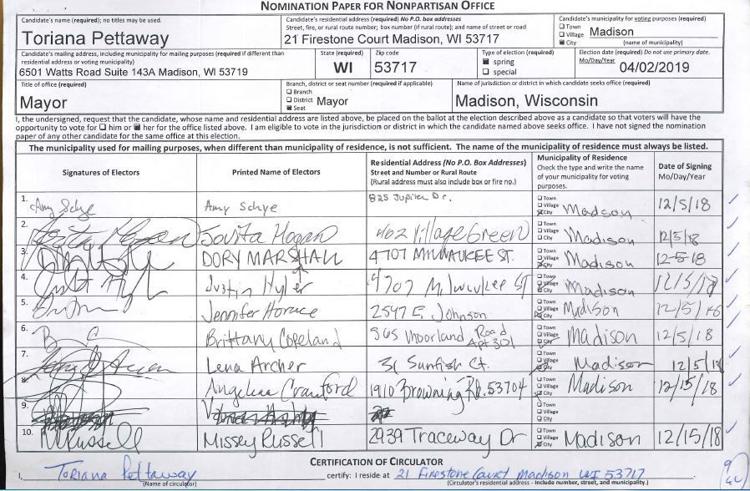 NOMINATION PAPER FOR NONPARTISAN OFFICE
Candidate's name (required); no titles may be used.
Toriana Pettaway
Candidate's residential address (required) No P.O. box addresses
Street, fire, or rural route number; box number (if rural route); and name of street or road
21 Firestone Court Madison, WI 53717
Candidate's municipality for voting purposes (required)
Town
Village
City
Madison
(name of municipality)
Candidate's mailing address, including municipality for mailing purposes (required if different than
residential address or voting municipality)
6501 Watts Road Suite 143A Madison, WI 53719
State (required)
WI
Zip code
53717
Type of election (required)
spring
special
Election date (required) Do not use primary date.
Mo/Day/Year
04/02/2019
Title of office (required)
Mayor
Branch, district or seat number (required if applicable)
Branch
District Mayor
Seat
Name of jurisdiction or district in which candidate seeks office (required)
Madison, Wisconsin
I, the undersigned, request that the candidate, whose name and residential address are listed above, be placed on the ballot at the election described above as a candidate so that voters will have the
opportunity to vote for him or her for the office listed above. I am eligible to vote in the jurisdiction or district in which the candidate named above seeks office. I have not signed the nomination
paper of any other candidate for the same office at this election.
The municipality used for mailing purposes, when different than municipality of residence, is not sufficient. The name of the municipality of residence must always be listed.
Signatures of Electors
Printed Name of Electors
Residential Address (No P.O. Box Addresses)
Street and Number or Rural Route
(Rural address must also include box or fire no.)
Municipality of Residence
Check the type and write the name
of your municipality for voting
purposes.
Date of Signing
Mo/Day/Year
1. Amy Schye Amy Schye 825 Jupiter Dr. Town Village City Madison 12/5/18
2. Hogan 462 Village Green Town Village City Madison 12/5/18
3. DORY MARSHALL 4707 MILWAUKEE ST. Town Village City Madison 12-5-18
4. Justin Hyler 4707 Milwaukee ST Town Village City Madison
5. Jennifer Horace 2547 E. Johnson Town Village City Madison 12/5/18
6. B C Brittany Copeland Moorland Road Apt 301 Town Village City Madison 12/5/18
7. Lena Archer 31 Sunfish Ct. Town Village City Madison 12/5/18
8. Angelica Crawford 1910 Browning Rd. 53704 Town Village City Madison 12/15/18
9. Town Village City
10. MRussell Missey Russell 2939 Traceway Dr Town Village City Madison 12/15/18
CERTIFICATION OF CIRCULATOR
I, Toriana Pettaway certify: I reside at 21 Firestone Court Madison WI 53717
(Name of circulator)
(Circulator's residential address - Include number, street, and municipality.)